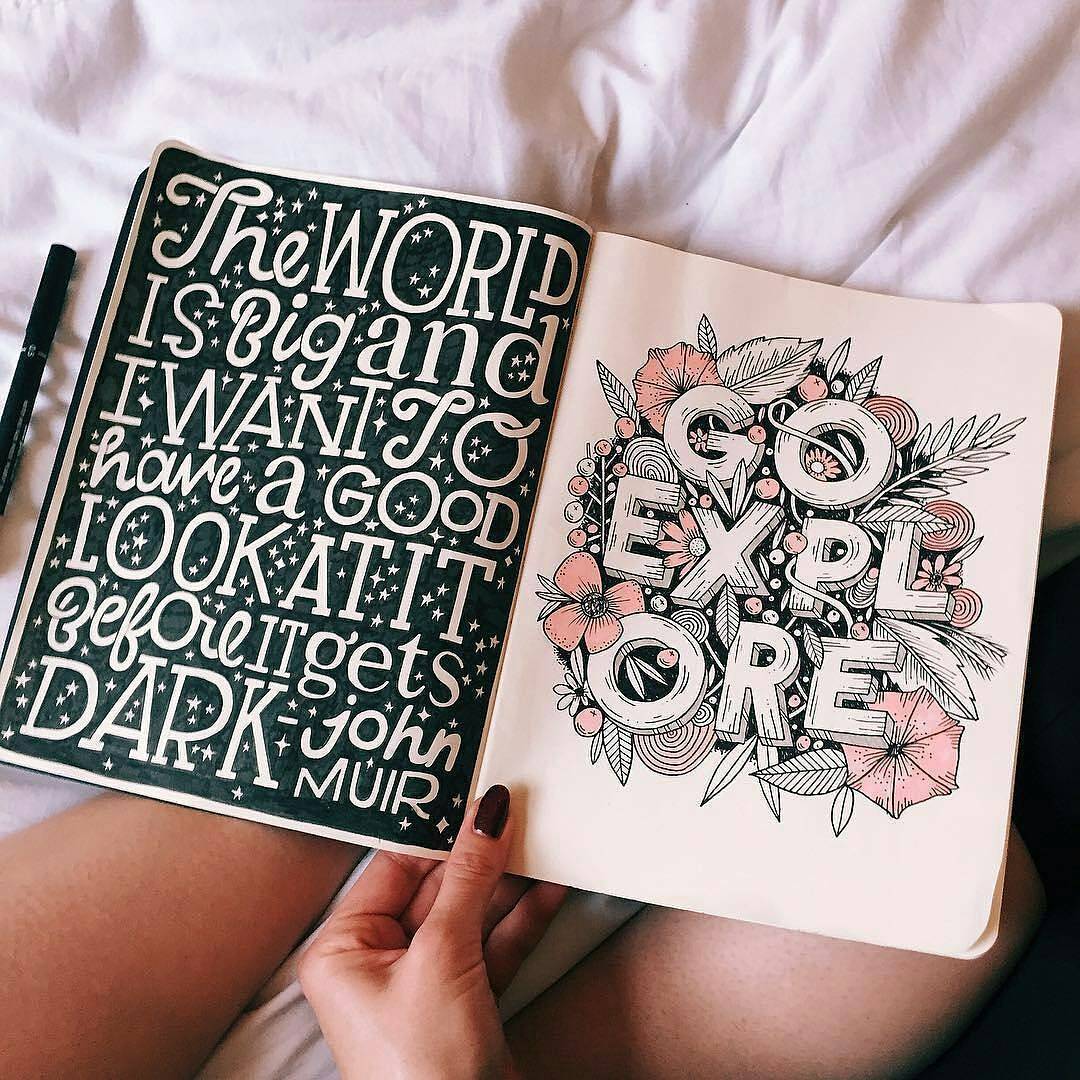 The WORLD
IS Big and
I WANT TO
have a GOOD
LOOK AT IT
Before IT gets
DARK - john
MUIR
GO
EXPL
ORE